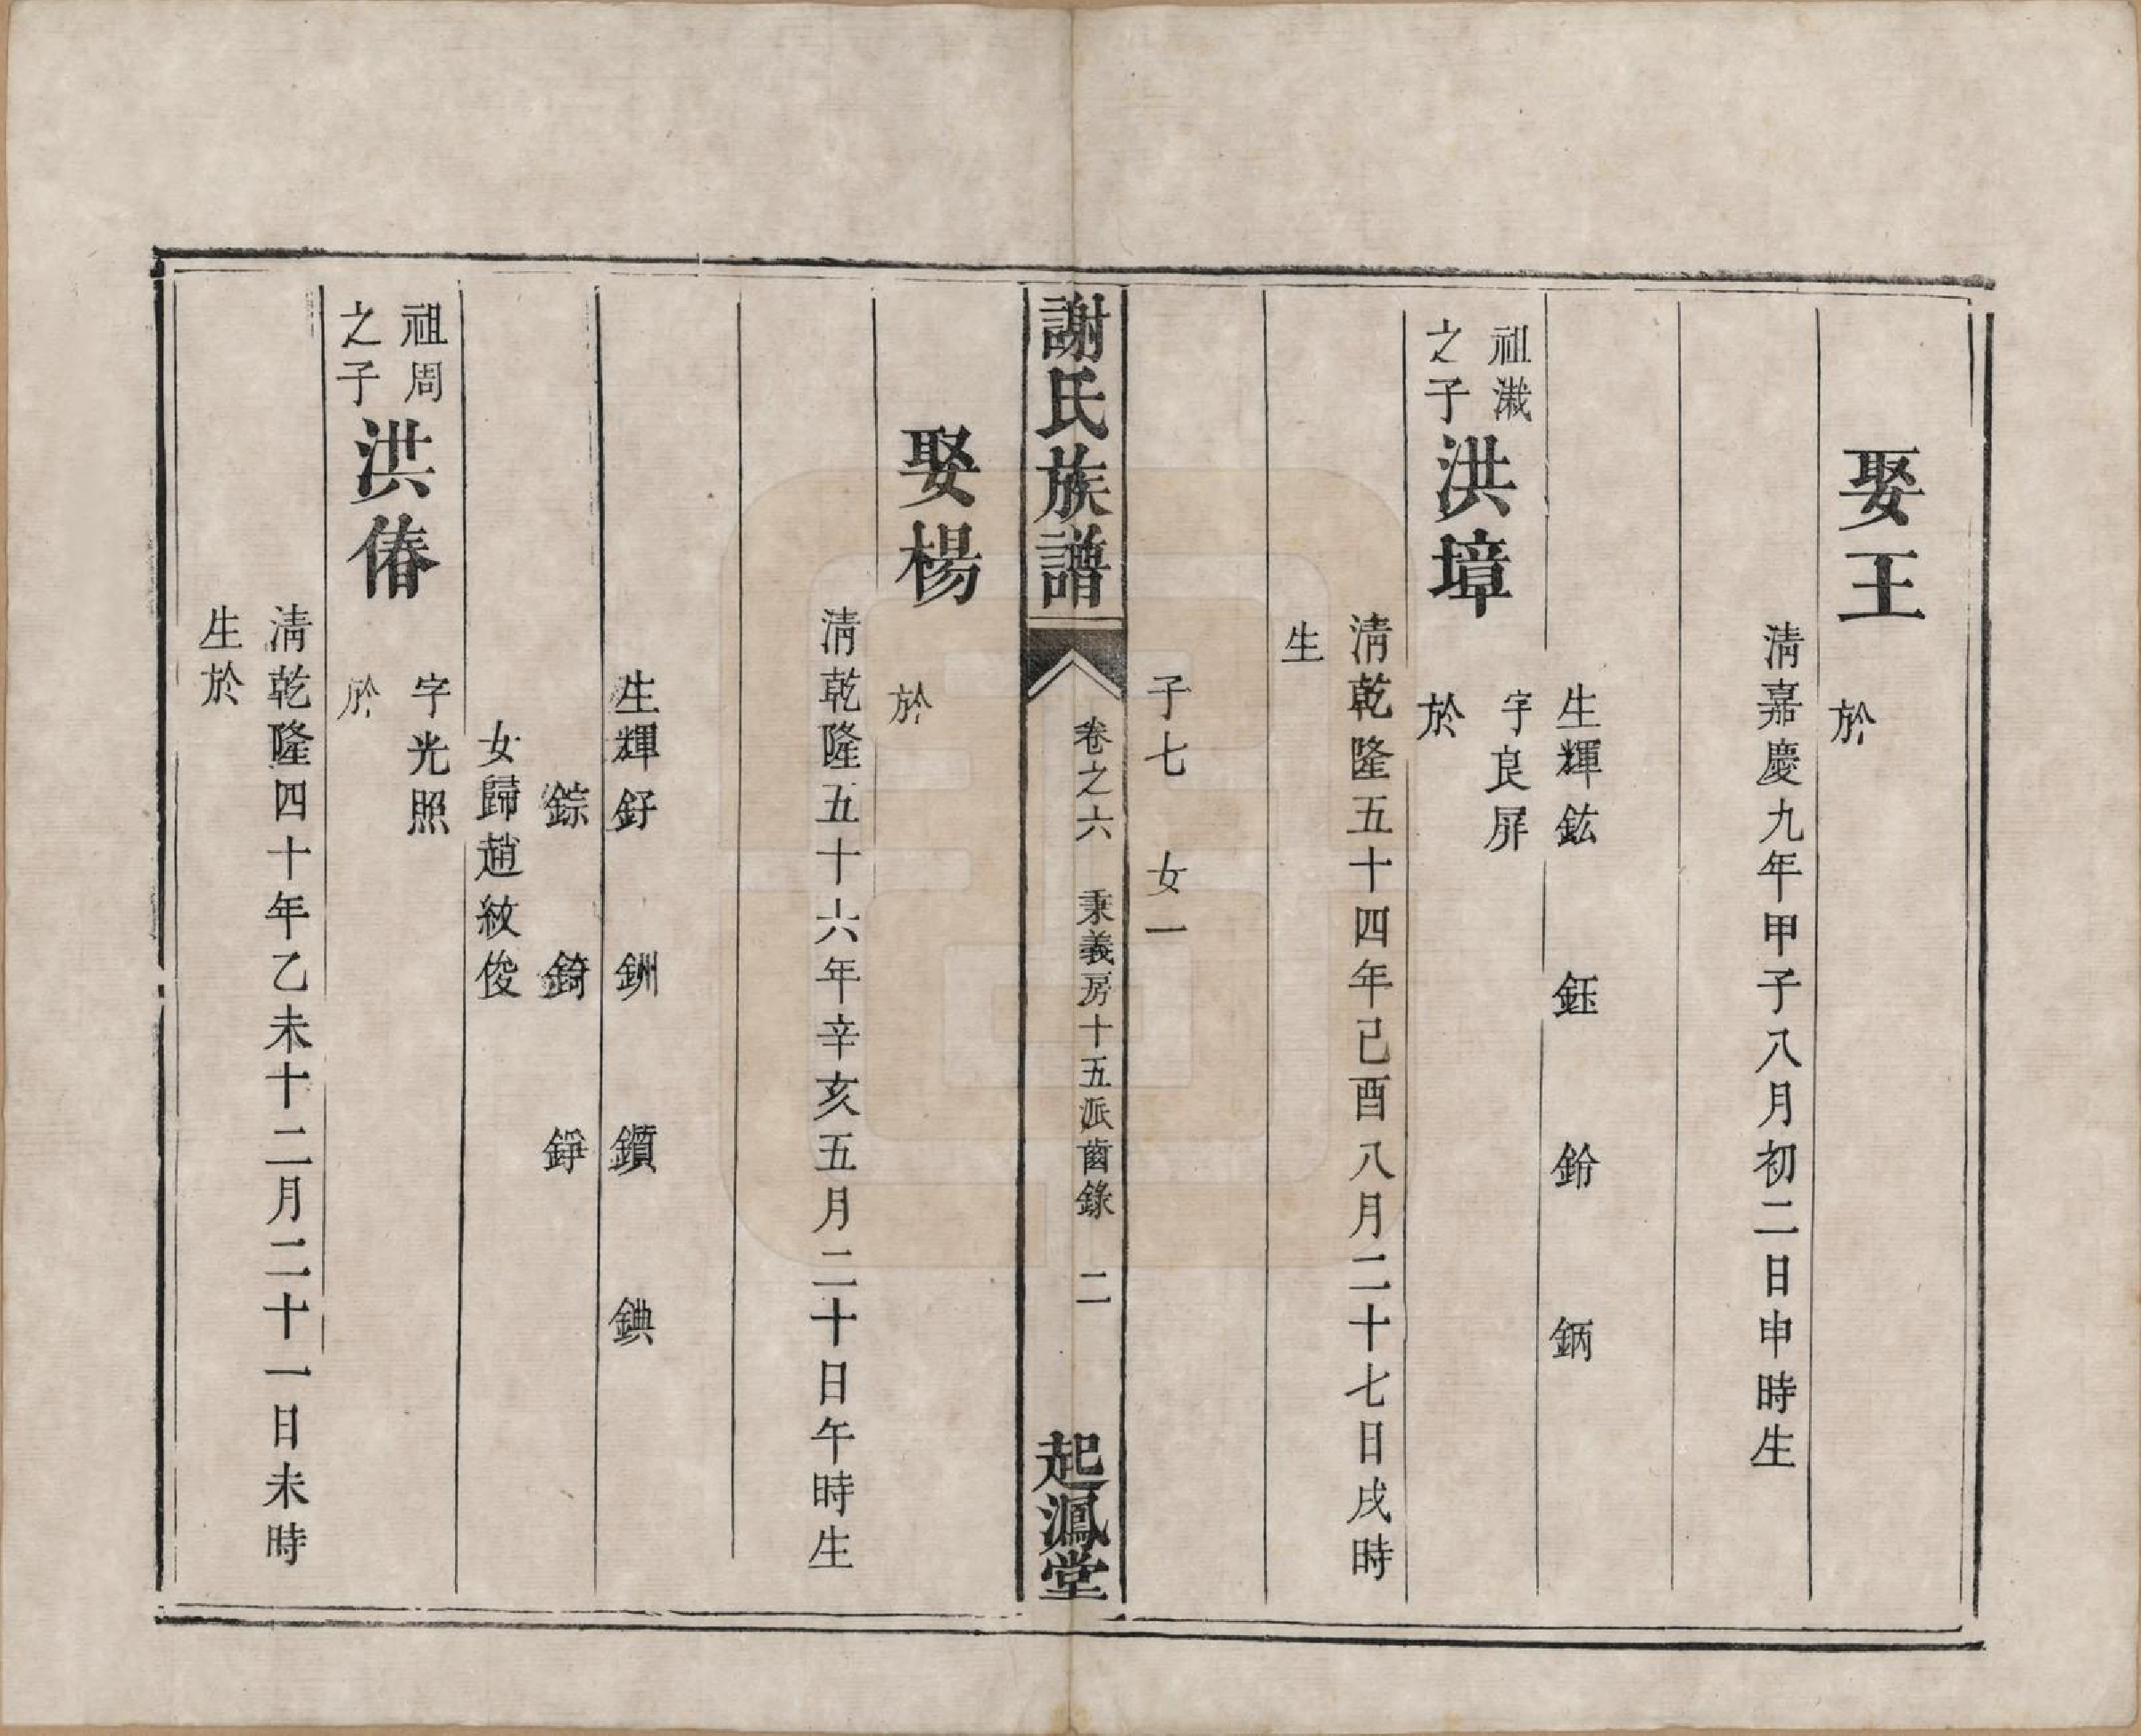 娶王
於
清嘉慶九年甲子八月初二日申時生
生輝鉉　鈺　鈴　鈵
祖濈之子洪墇
字良屏
於
清乾隆五十四年己酉八月二十七日戌時
生
子七　女一
謝氏族譜　卷之六　秉義房十五派齒錄　二　起鳳堂
娶楊
於
清乾隆五十六年辛亥五月二十日午時生
生輝釨　銂　鑽　錪
錝　錡　錚
女歸趙紋俊
祖周之子洪偆
字光照
於
清乾隆四十年乙未十二月二十一日未時
生於